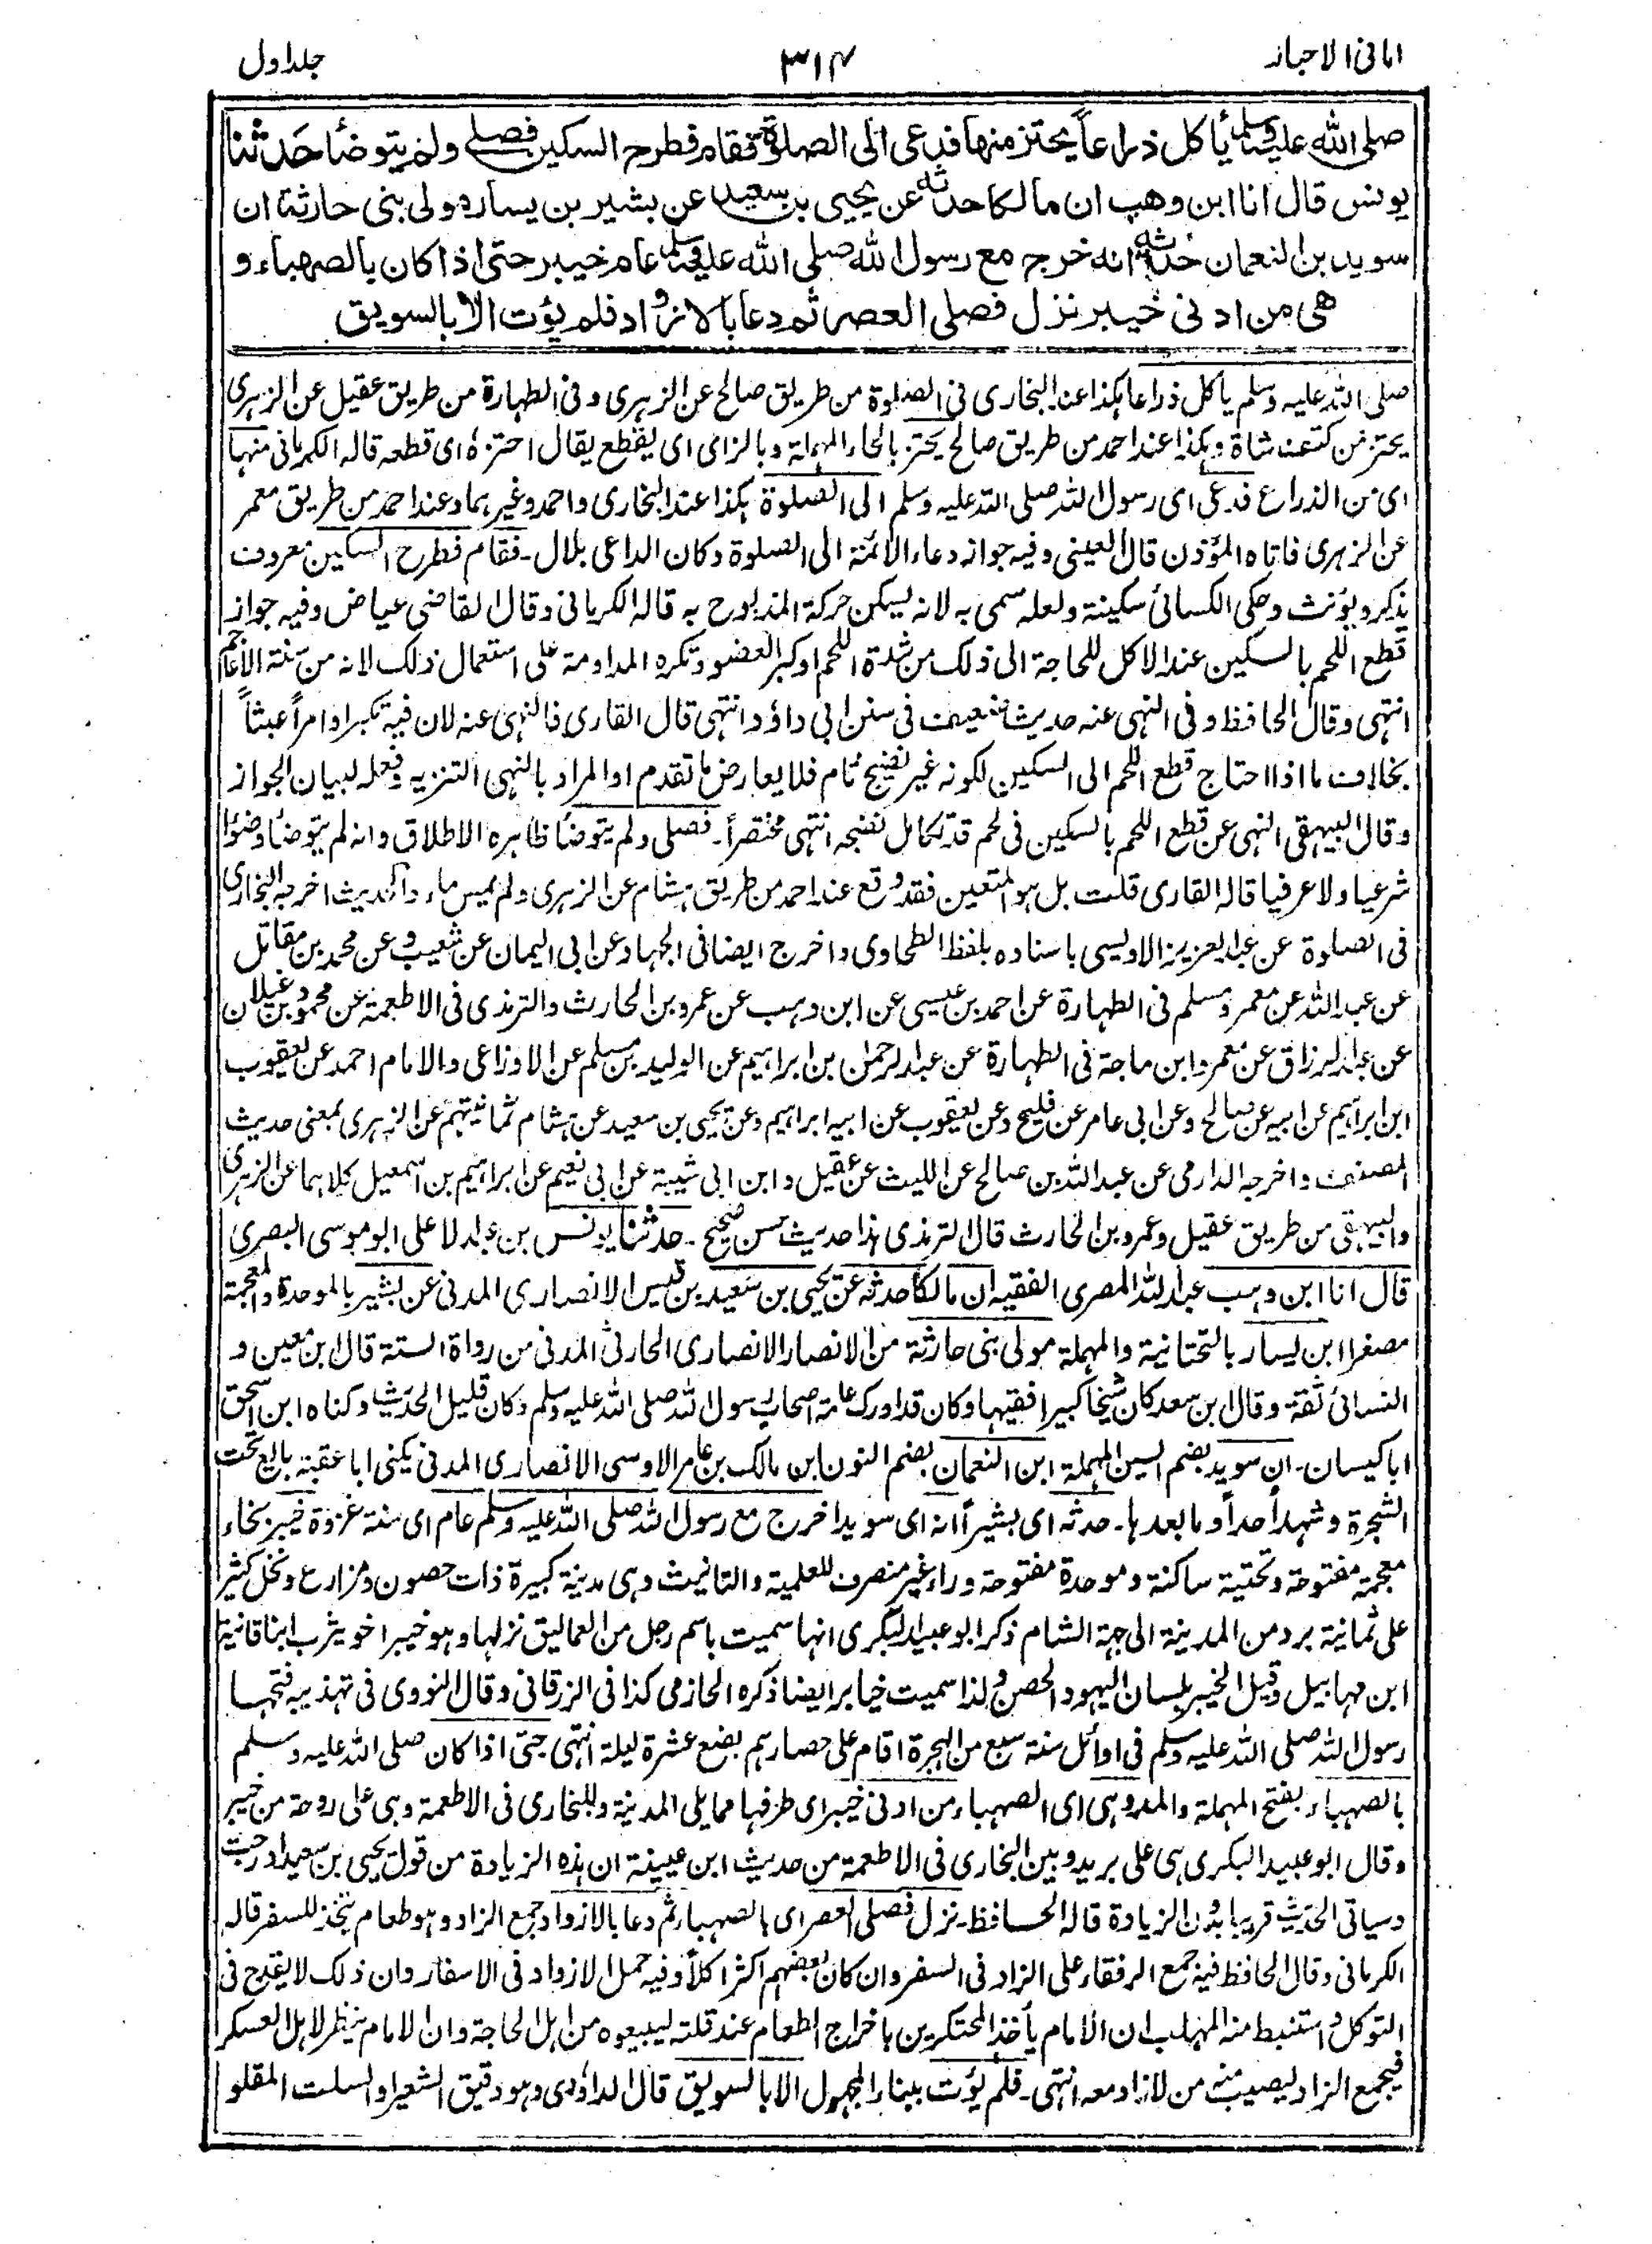 امانى الاحبار
٣١٤
جلد اول
صلى الله عليه وسلم يأكل ذراعاً يحتز منها فدعى الى الصلوة فقام فطرح السكين فصلى ولم يتوضأ حدثنا
يونس قال انا ابن وهب ان مالكا حدثه عن يحيى بن سعيد عن بشير بن يسار مولى بنى حارثة ان
سويد بن النعمان حدثه انه خرج مع رسول الله صلى الله عليه وسلم عام خيبر حتى اذا كان بالصهباء و
هى من ادنى خيبر نزل فصلى العصر ثم دعا بالازواد فلم يؤت الا بالسويق
صلى الله عليه وسلم يأكل ذراعا هكذا عند البخارى فى الصلوة من طريق صالح عن الزهرى وفى الطهارة من طريق عقيل عن الزهرى
يحتز من كتف شاة وهكذا عند احمد من طريق صالح يحتز بالحاء المهملة وبالزاى اى يقطع يقال احتزه اى قطعه قاله الكرمانى منها
اى من الذراع فدعى اى رسول الله صلى الله عليه وسلم الى الصلوة هكذا عند البخارى واحمد وغيرهما وعند احمد من طريق معمر
عن الزهرى فاتاه المؤذن قال العينى وفيه جواز دعاء الائمة الى الصلوة وكان الداعى بلال ـ فقام فطرح السكين معروف
يذكر ويؤنث وحكى الكسائى سكينة ولعله سمى به لانه يسكن حركة المذبوح به قاله الكرمانى وقال القاضى عياض وفيه جواز
قطع اللحم بالسكين عند الاكل للحاجة الى ذلك من شدة اللحم او كبر العضو وتكره المداومة على استعمال ذلك لانه من سنة الاعاجم
انتهى وقال الحافظ وفى النهى عنه حديث ضعيف فى سنن ابى داؤد انتهى قال القارى فالنهى عنه لان فيه تكبرا وامراً عبثاً
بخلاف ما اذا احتاج قطع اللحم الى السكين لكونه غير نضيج تام فلا يعارض ما تقدم او المراد بالنهى التنزيه وفعله لبيان الجواز
وقال البيهقى النهى عن قطع اللحم بالسكين فى لحم قد تكامل نضجه انتهى مختصراً ـ فصلى ولم يتوضأ ظاهره الاطلاق وانه لم يتوضأ وضوءًا
شرعيا ولا عرفيا قاله القارى قلت بل هو المتعين فقد وقع عند احمد من طريق هشام عن الزهرى ولم يمس ماء والحديث اخرجه البخارى
فى الصلوة عن عبد العزيز الاويسى باسناده بلفظ الطحاوى واخرج ايضا فى الجهاد وعن ابى اليمان عن شعيب وعن محمد بن مقاتل
عن عبد الله عن معمر ومسلم فى الطهارة عن احمد بن عيسى عن ابن وهب عن عمرو بن الحارث والترمذى فى الاطعمة عن محمود بن غيلان
عن عبد الرزاق عن معمر وابن ماجة فى الطهارة عن عبد الرحمن بن ابراهيم عن الوليد بن مسلم عن الاوزاعى والامام احمد عن يعقوب
ابن ابراهيم عن ابيه عن صالح وعن ابى عامر عن فليح وعن يعقوب عن ابيه ابراهيم وعن يحيى بن سعيد عن هشام ثمانيتهم عن الزهرى بمعنى حديث
المصنف واخرجه الدارمى عن عبد الله بن صالح عن الليث عن عقيل وابن ابى شيبة عن ابى نعيم عن ابراهيم بن اسمعيل كلاهما عن الزهرى
والبيهقى من طريق عقيل وعمرو بن الحارث قال الترمذى هذا حديث حسن صحيح ـ حدثنا يونس بن عبد الاعلى ابو موسى البصرى
قال انا ابن وهب عبد الله المصرى الفقيه ان مالكا حدثه عن يحيى بن سعيد بن قيس الانصارى المدنى عن بشير بالموحدة والمعجمة
مصغرا ابن يسار بالتحتانية والمهملة مولى بنى حارثة من الانصار الانصارى الحارثى المدنى من رواة الستة قال ابن معين و
النسائى ثقة وقال ابن سعد كان شيخا كبيرا فقيها وكان قد ادرك عامة اصحاب رسول الله صلى الله عليه وسلم وكان قليل الحديث وكناه ابن اسحق
ابا كيسان ـ ان سويد بضم السين المهملة ابن النعمان بضم النون ابن مالك بن عامر الاوسى الانصارى المدنى يكنى ابا عقبة بايع تحت
الشجرة وشهد احداً وما بعدها ـ حدثه اى بشيراً انه اى سويدا خرج مع رسول الله صلى الله عليه وسلم عام اى سنة غزوة خيبر بخاء
معجمة مفتوحة وتحتية ساكنة وموحدة مفتوحة وراء غير منصرف للعلمية والتانيث وهى مدينة كبيرة ذات حصون ومزارع ونخل كثير
على ثمانية برد من المدينة الى جهة الشام ذكر ابو عبيد البكرى انها سميت باسم رجل من العماليق نزلها وهو خيبر اخو يثرب ابنا قانية
ابن مهابيل وقيل الخيبر بلسان اليهود الحصن ولذا سميت خيابر ايضا ذكره الحازمى كذا فى الزرقانى وقال النووى فى تهذيبه فتحها
رسول الله صلى الله عليه وسلم فى اوائل سنة سبع من الهجرة اقام على حصارهم بضع عشرة ليلة انتهى حتى اذا كان صلى الله عليه وسلم
بالصهباء بفتح المهملة والمد وهى اى الصهباء من ادنى خيبر اى طرفها مما يلى المدينة وللبخارى فى الاطعمة وهى على روحة من خيبر
وقال ابو عبيد البكرى هى على بريد وبين البخارى فى الاطعمة من حديث ابن عيينة ان هذه الزيادة من قول يحيى بن سعيد ادرجت
وسياتى الحديث قريبا بدون الزيادة قاله الحافظ ـ نزل فصلى العصر اى بالصهباء ثم دعا بالازواد جمع الزاد وهو طعام يتخذ للسفر قاله
الكرمانى وقال الحافظ فيه جمع الرفقاء على الزاد فى السفر وان كان بعضهم اكثر اكلاً وفيه حمل الازواد فى الاسفار وان ذلك لا يقدح فى
التوكل واستنبط منه المهلب ان الامام يأخذ المحتكرين باخراج الطعام عند قلته ليبيعوه من اهل الحاجة وان الامام ينظر لاهل العسكر
فيجمع الزاد ليصيب منه من لا زاد معه انتهى ـ فلم يؤت ببناء المجهول الا بالسويق قال الداؤدى وهو دقيق الشعير او السلت المقلو